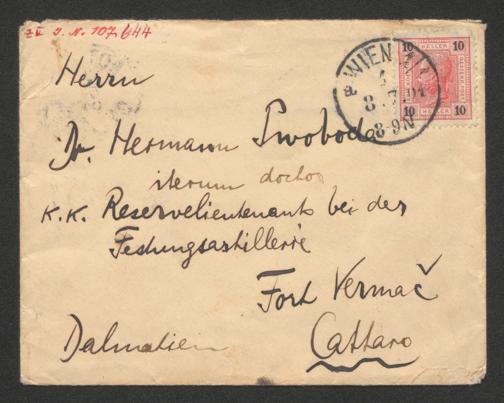 zu I. N. 107.644
Herrn
WIEN
8
8-9N
10 HELLER 10
10 HELLER 10
Dr. Hermann Swoboda
iterum doctor
K. K. Reservelieutenant bei der
Festungsartillerie
Fort Vermač
Dalmatien Cattaro